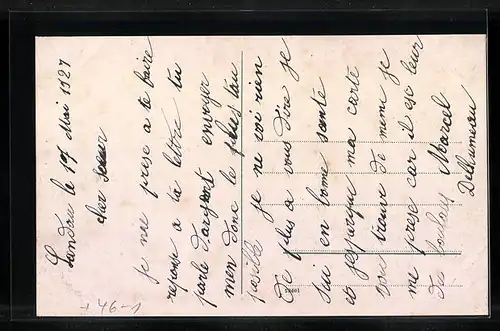 Landres le 17 Mai 1921
cher Soeur
je vai prese a te faire
reponse a ta lettre tu
parle d'argant envoyer
men donc le plus tau
posible je ne voi rien
de plus a vous dire je
sui en bonne santé
et j'esperque ma carte
vous trouve de meme je
me prese car il est leur
du Marcel
Delhumeau
+46-1